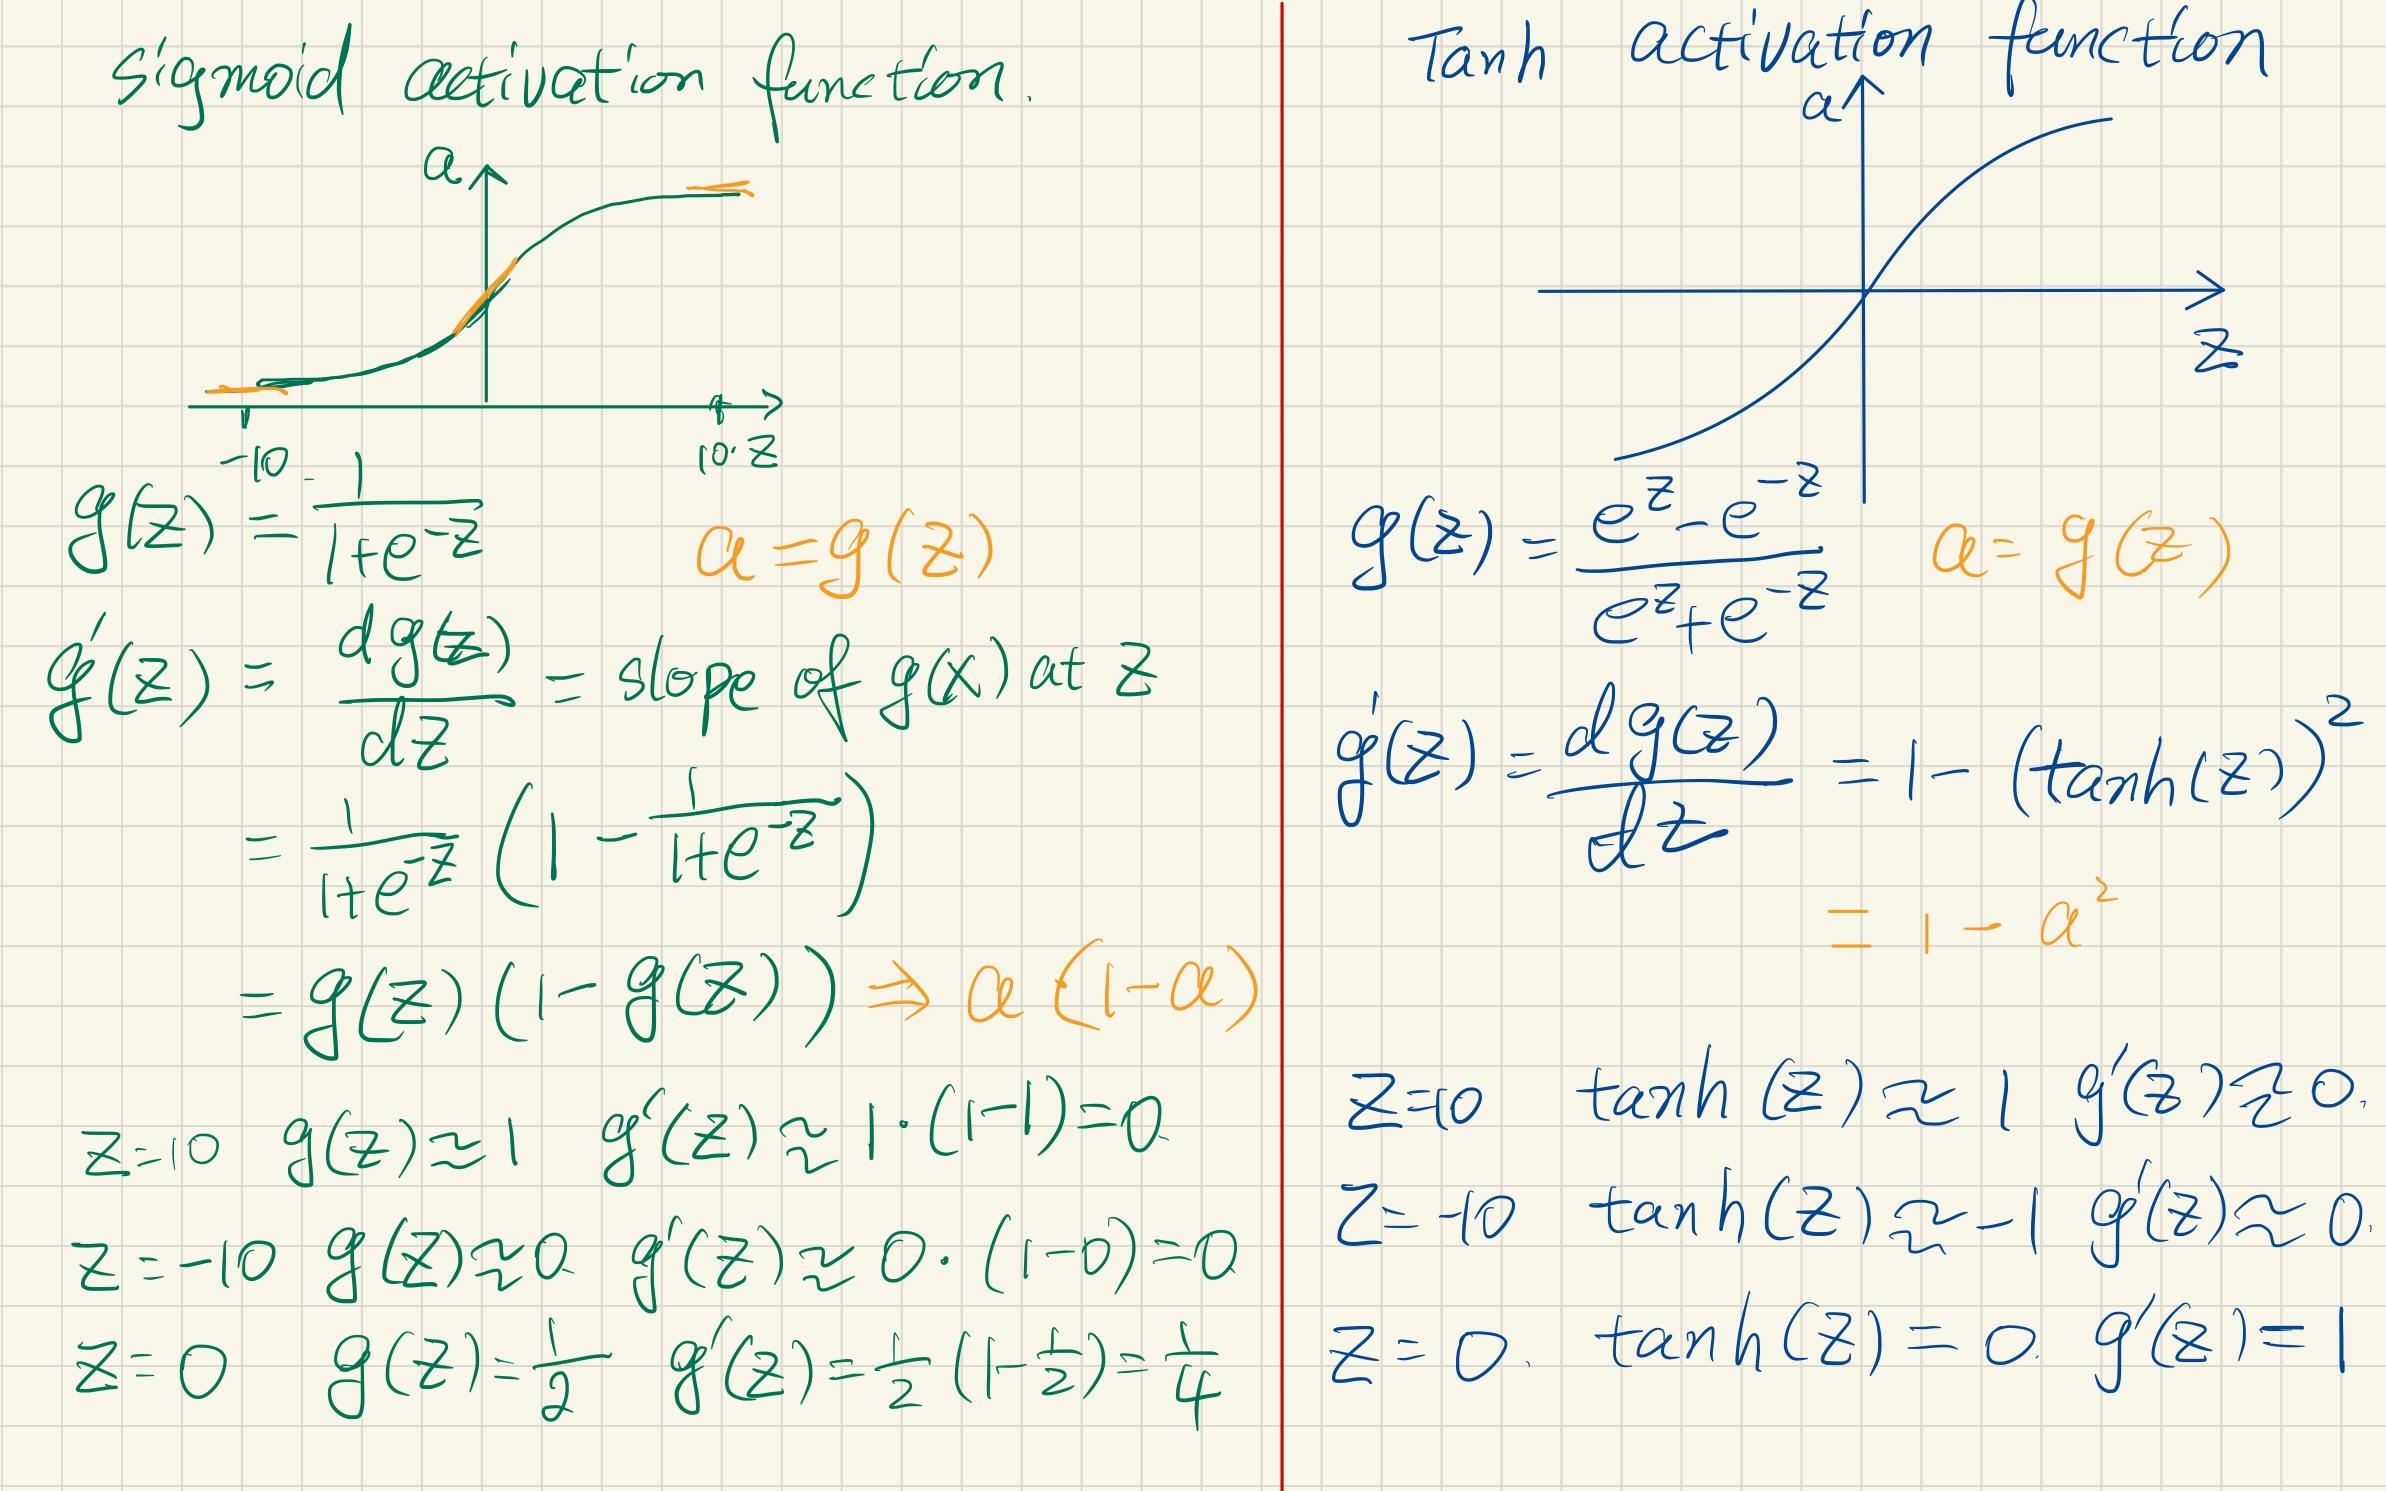 Sigmoid activation function.
a
-10 10 z
g(z) = 1/(1+e^-z) a = g(z)
g'(z) = dg(z)/dz = slope of g(x) at z
= 1/(1+e^-z) (1 - 1/(1+e^-z))
= g(z) (1 - g(z)) ⇒ a (1-a)
z=10 g(z)≈1 g'(z)≈1·(1-1)=0
z=-10 g(z)≈0 g'(z)≈0·(1-0)=0
z=0 g(z)=1/2 g'(z)=1/2(1-1/2)=1/4
Tanh activation function
a
z
g(z) = (e^z - e^-z)/(e^z + e^-z) a = g(z)
g'(z) = dg(z)/dz = 1 - (tanh(z))^2
= 1 - a^2
z=10 tanh(z)≈1 g'(z)≈0.
z=-10 tanh(z)≈-1 g'(z)≈0.
z=0. tanh(z)=0. g'(z)=1